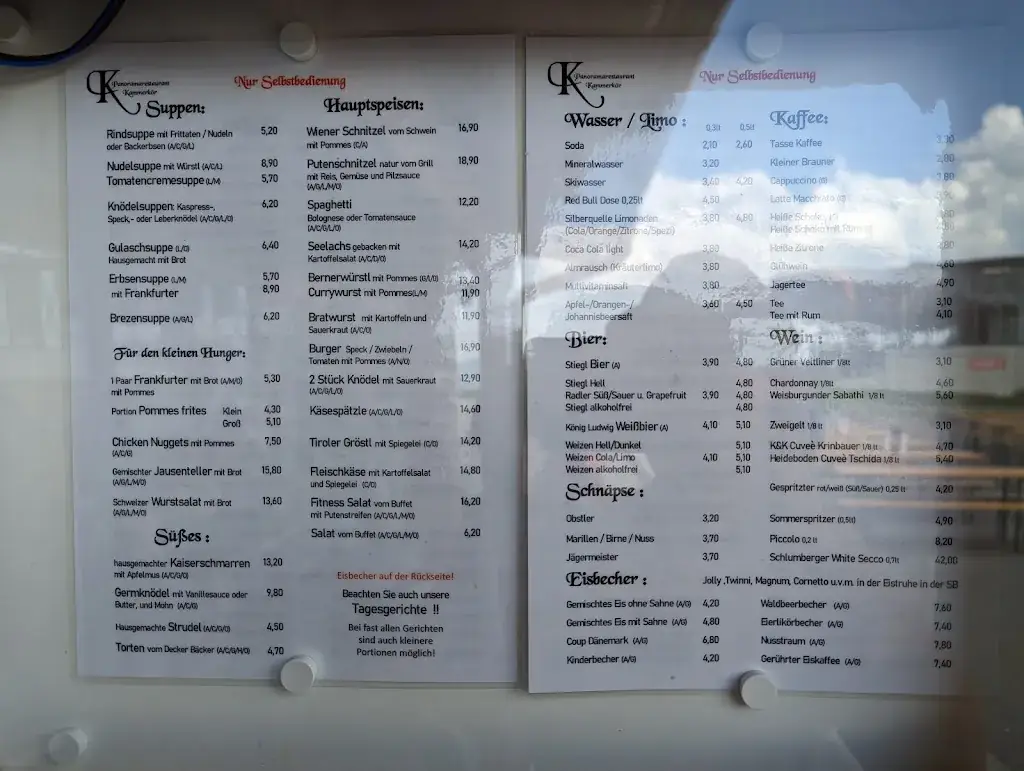 K Panoramarestaurant
Kammerkör
Nur Selbstbedienung
Suppen:
Rindsuppe mit Frittaten / Nudeln 5,20
oder Backerbsen (A/C/G/L)
Nudelsuppe mit Würstl (A/C/L) 8,90
Tomatencremesuppe (L/M) 5,70
Knödelsuppen: Kaspress-, 6,20
Speck,- oder Leberknödel (A/C/G/L/O)
Gulaschsuppe (L/O) 6,40
Hausgemacht mit Brot
Erbsensuppe (L/M) 5,70
mit Frankfurter 8,90
Brezensuppe (A/G/L) 6,20
Für den kleinen Hunger:
1 Paar Frankfurter mit Brot (A/M/O) 5,30
mit Pommes
Portion Pommes frites Klein 4,30
Groß 5,10
Chicken Nuggets mit Pommes 7,50
(A/C/G)
Gemischter Jausenteller mit Brot 15,80
(A/G/L/M/O)
Schweizer Wurstsalat mit Brot 13,60
(A/G/L/M/O)
Süßes :
hausgemachter Kaiserschmarren 13,20
mit Apfelmus (A/C/G/O)
Germknödel mit Vanillesauce oder 9,80
Butter, und Mohn (A/C/G)
Hausgemachte Strudel (A/C/G/O) 4,50
Torten vom Decker Bäcker (A/C/G/H/O) 4,70
Hauptspeisen:
Wiener Schnitzel vom Schwein 16,90
mit Pommes (C/A)
Putenschnitzel natur vom Grill 18,90
mit Reis, Gemüse und Pilzsauce
(A/G/L/M/O)
Spaghetti 12,20
Bolognese oder Tomatensauce
(A/C/G/L/O)
Seelachs gebacken mit 14,20
Kartoffelsalat (A/C/D/O)
Bernerwürstl mit Pommes (G/L/O) 13,40
Currywurst mit Pommes(L/M) 11,90
Bratwurst mit Kartoffeln und 11,90
Sauerkraut (A/C/O)
Burger Speck / Zwiebeln / 16,90
Tomaten mit Pommes (A/N/O)
2 Stück Knödel mit Sauerkraut 12,90
(A/C/G/L/O)
Käsespätzle (A/C/G/L/O) 14,60
Tiroler Gröstl mit Spiegelei (C/O) 14,20
Fleischkäse mit Kartoffelsalat 14,80
und Spiegelei (C/O)
Fitness Salat vom Buffet 16,20
mit Putenstreifen (A/C/G/L/M/O)
Salat vom Buffet (A/C/G/L/M/O) 6,20
Eisbecher auf der Rückseite!
Beachten Sie auch unsere
Tagesgerichte !!
Bei fast allen Gerichten
sind auch kleinere
Portionen möglich!
K Panoramarestaurant
Kammerkör
Nur Selbstbedienung
Wasser / Limo : 0,3lt 0,5lt
Soda 2,10 2,60
Mineralwasser 3,20
Skiwasser 3,40 4,20
Red Bull Dose 0,25lt 4,50
Silberquelle Limonaden 3,80 4,80
(Cola/Orange/Zitrone/Spezi)
Coca Cola light 3,80
Almrausch (Kräuterlimo) 3,80
Multivitaminsaft 3,80
Apfel-/Orangen-/ 3,60 4,50
Johannisbeersaft
Bier:
Stiegl Bier (A) 3,90 4,80
Stiegl Hell 4,80
Radler Süß/Sauer u. Grapefruit 3,90 4,80
Stiegl alkoholfrei 4,80
König Ludwig Weißbier (A) 4,10 5,10
Weizen Hell/Dunkel 5,10
Weizen Cola/Limo 4,10 5,10
Weizen alkoholfrei 5,10
Schnäpse :
Obstler 3,20
Marillen / Birne / Nuss 3,70
Jägermeister 3,70
Kaffee:
Tasse Kaffee
Kleiner Brauner
Cappuccino (G)
Latte Macchiato
Heiße Schoko
Heiße Schoko mit Rum
Heiße Zitrone
Glühwein
Jagertee 4,90
Tee 3,10
Tee mit Rum 4,10
Wein :
Grüner Veltliner 1/8lt 3,10
Chardonnay 1/8lt 4,60
Weisburgunder Sabathi 1/8 lt 5,60
Zweigelt 1/8 lt 3,10
K&K Cuveè Krinbauer 1/8 lt 4,70
Heideboden Cuveè Tschida 1/8 lt 5,40
Gespritzter rot/weiß (Süß/Sauer) 0,25 lt 4,20
Sommerspritzer (0,5lt) 4,90
Piccolo 0,2 lt 8,20
Schlumberger White Secco 0,7lt 42,00
Eisbecher : Jolly ,Twinni, Magnum, Cornetto u.v.m. in der Eistruhe in der SB
Gemischtes Eis ohne Sahne (A/G) 4,20
Gemischtes Eis mit Sahne (A/G) 4,80
Coup Dänemark (A/G) 6,80
Kinderbecher (A/G) 4,20
Waldbeerbecher (A/G) 7,60
Eierlikörbecher (A/G) 7,40
Nusstraum (A/G) 7,80
Gerührter Eiskaffee (A/G) 7,40